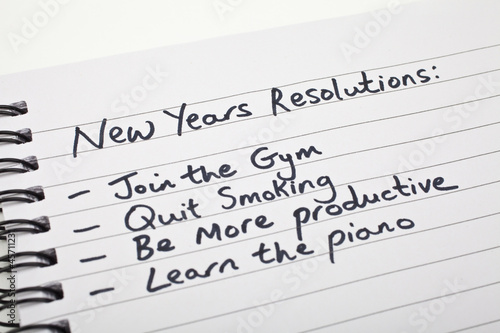 New Years Resolutions:
- Join the Gym
- Quit Smoking
- Be More productive
- Learn the piano